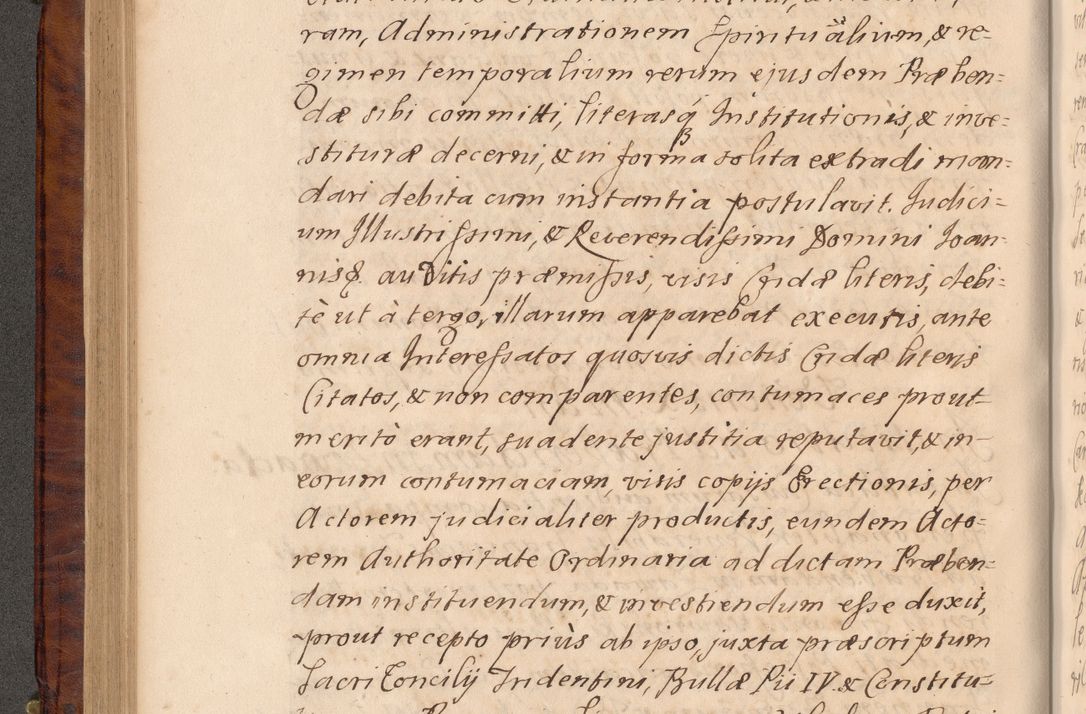 ram, Administrationem Spiritualium, & re-
gimen temporalium rerum ejusdem Præben=
dæ sibi committi, literasq́ Institutionis, & inve=
stituræ decerni, & in forma solita extradi man=
dari debita cum instantia postulavit. Judici=
um Illustrissimi, & Reverendissimi Domini Joan=
nis auditis præmissis, visis Cridæ literis, debi=
tè ut à tergo, illarum apparebat executis, ante
omnia Interessatos quosvis dictis Cridæ literis
Citatos, & non comparentes, contumaces prout=
meritò erant, suadente justitia reputavit, & in-
eorum contumaciam, visis copijs Erectionis, per
Actorem judicialiter productis, eundem Acto=
rem Authoritate Ordinaria ad dictam Præben=
dam instituendum, & investiendum esse duxit,
prout recepto priùs ab ipso, juxta præscriptum
Sacri Concilij Tridentini, Bullæ Pii IV. & Constitu=